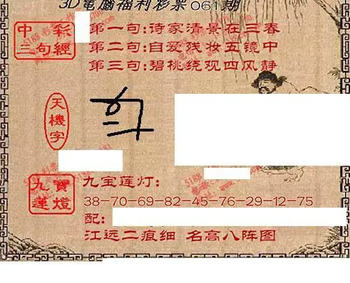 3D電腦福利彩票061期
中彩
三句經
第一句：诗家清景在三春
第二句：自爱残妆五镜中
第三句：碧桃绕观四风静
天機字
九寶
蓮燈
九宝莲灯：
38-70-69-82-45-76-29-12-75
配：
江远二痕细 名高八阵图